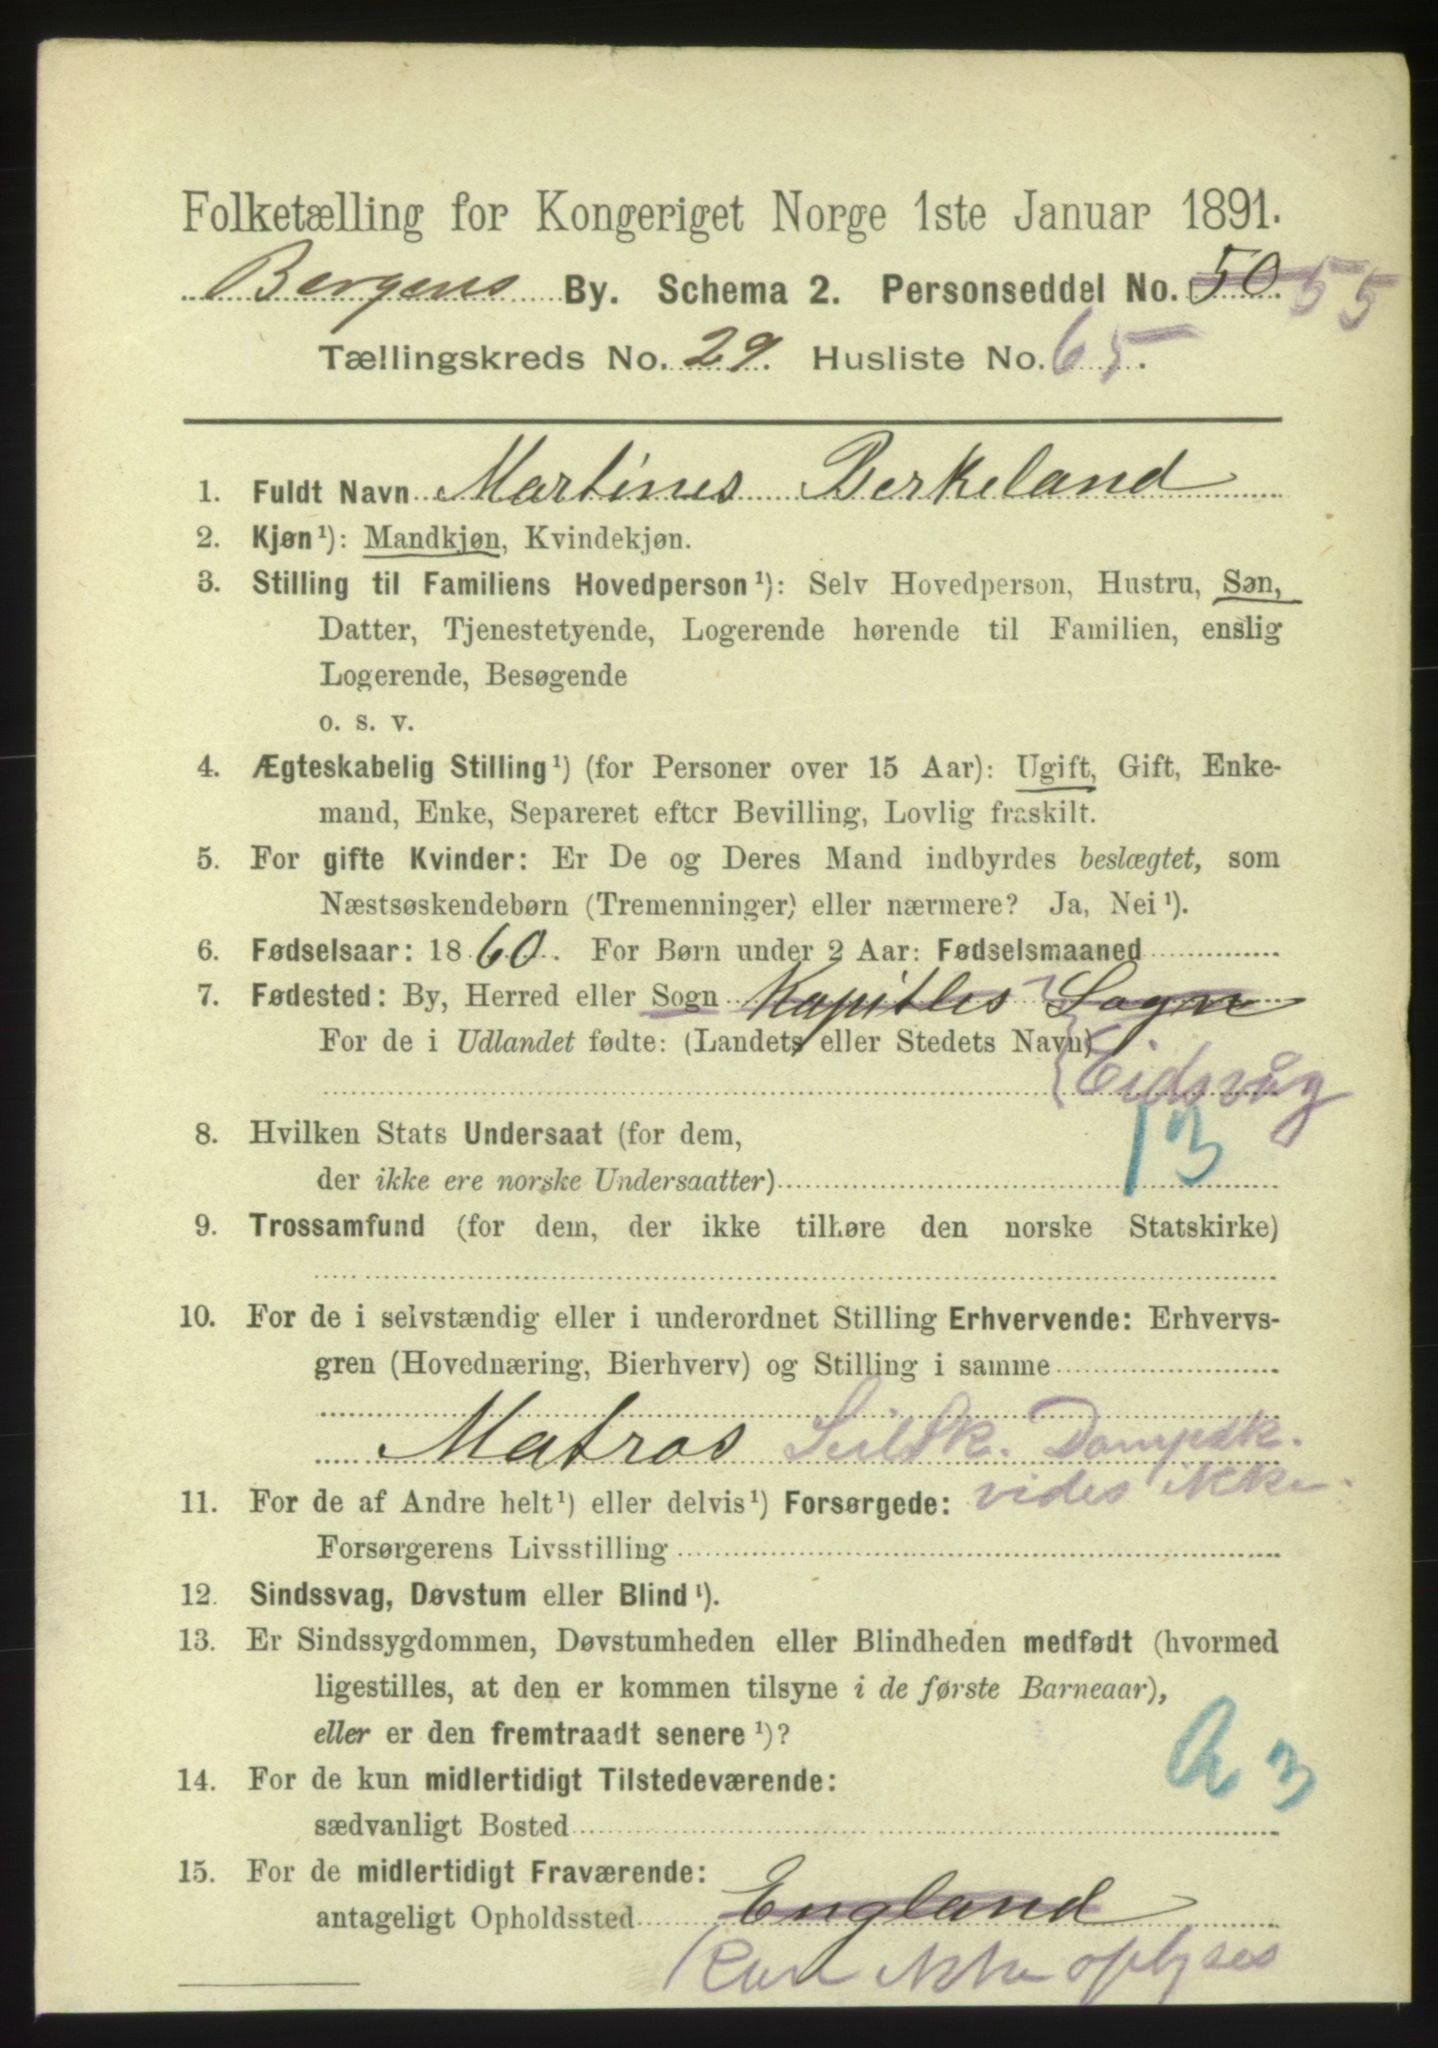 Folketælling for Kongeriget Norge 1ste Januar 1891.
Bergens By. Schema 2. Personseddel No. 50 55
Tællingskreds No. 29. Husliste No. 65.
1. Fuldt Navn Martines Berkeland
2. Kjøn¹): Mandkjøn, Kvindekjøn.
3. Stilling til Familiens Hovedperson¹): Selv Hovedperson, Hustru, Søn,
Datter, Tjenestetyende, Logerende hørende til Familien, enslig
Logerende, Besøgende
o. s. v.
4. Ægteskabelig Stilling¹) (for Personer over 15 Aar): Ugift, Gift, Enke-
mand, Enke, Separeret efter Bevilling, Lovlig fraskilt.
5. For gifte Kvinder: Er De og Deres Mand indbyrdes beslægtet, som
Næstsøskendebørn (Tremenninger) eller nærmere? Ja, Nei¹).
6. Fødselsaar: 1860. For Børn under 2 Aar: Fødselsmaaned
7. Fødested: By, Herred eller Sogn Kapitles Sogn
For de i Udlandet fødte: (Landets eller Stedets Navn)
Eidsvåg
8. Hvilken Stats Undersaat (for dem,
13
der ikke ere norske Undersaatter)
9. Trossamfund (for dem, der ikke tilhøre den norske Statskirke)
10. For de i selvstændig eller i underordnet Stilling Erhvervende: Erhvervs-
gren (Hovednæring, Bierhverv) og Stilling i samme
Matros Seilsk. Dampsk.
vides ikke
11. For de af Andre helt¹) eller delvis¹) Forsørgede:
Forsørgerens Livsstilling
12. Sindssvag, Døvstum eller Blind¹).
13. Er Sindssygdommen, Døvstumheden eller Blindheden medfødt (hvormed
ligestilles, at den er kommen tilsyne i de første Barneaar),
eller er den fremtraadt senere¹)?
14. For de kun midlertidigt Tilstedeværende:
sædvanligt Bosted
15. For de midlertidigt Fraværende:
antageligt Opholdssted England
Kan ikke oplyses